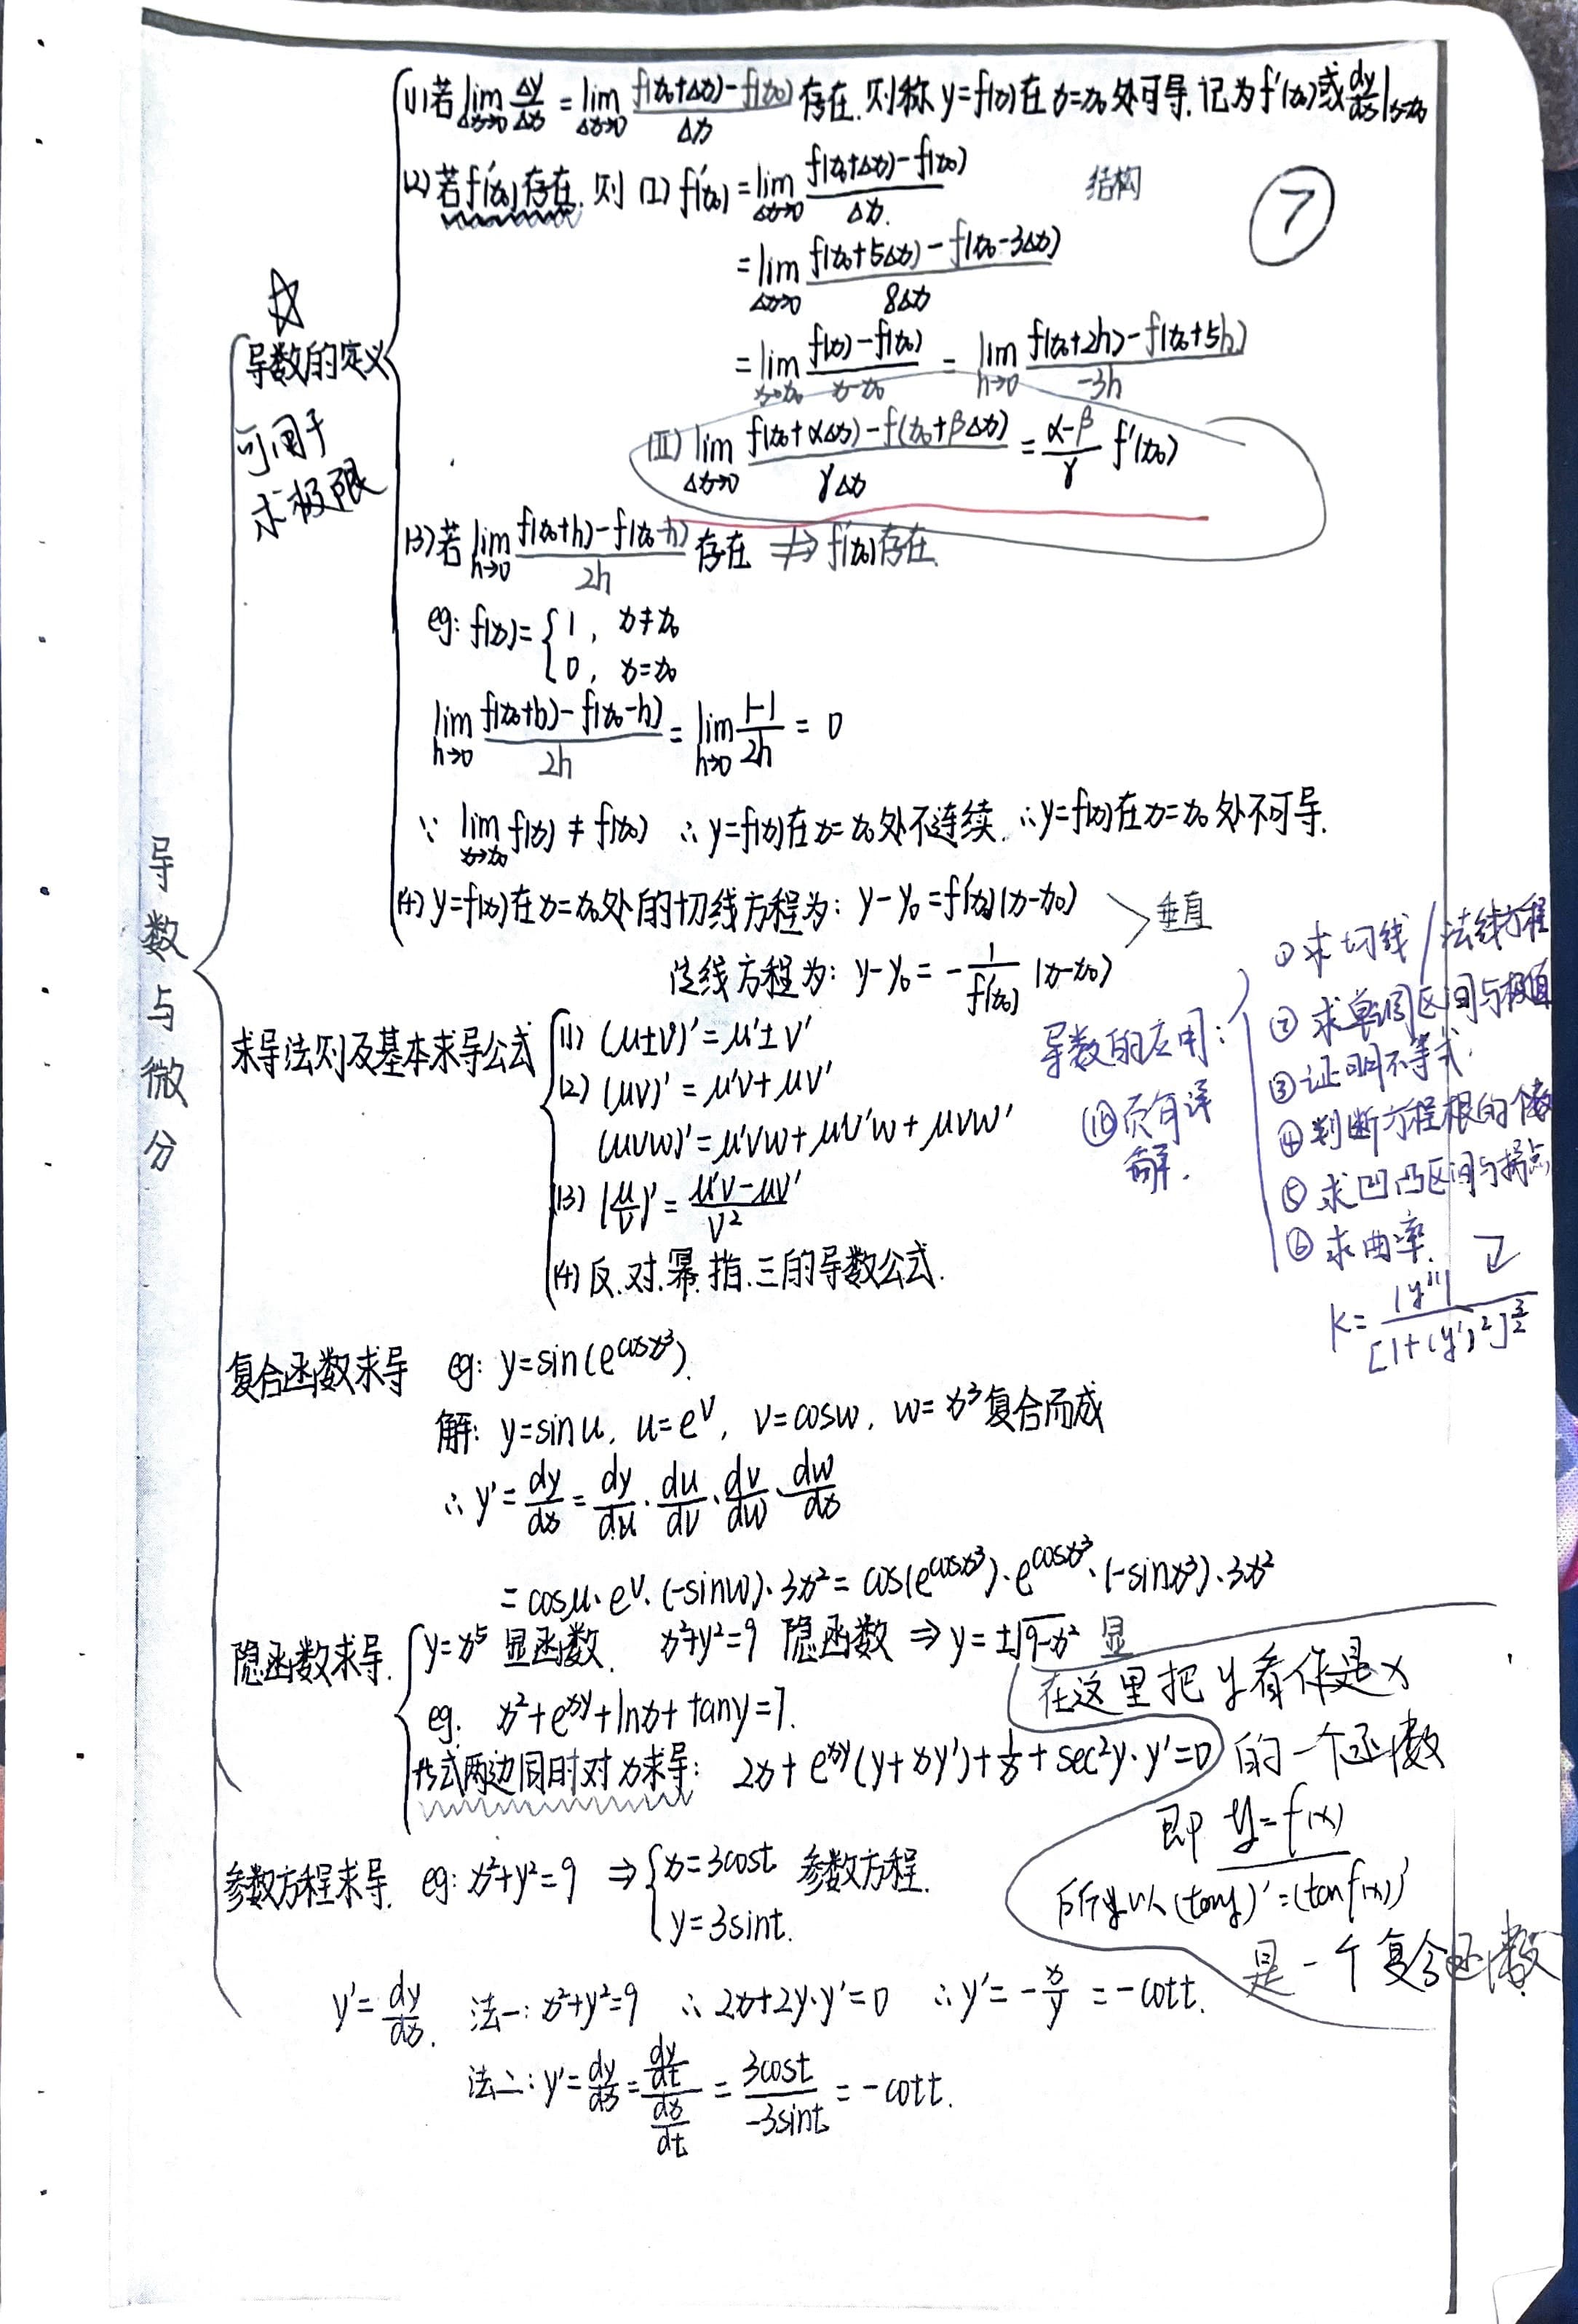 ⑦
导数与微分
☆
导数的定义
可用于
求极限
(1) 若 lim_{Δx→0} Δy/Δx = lim_{Δx→0} [f(x₀+Δx)-f(x₀)]/Δx 存在. 则称 y=f(x) 在 x=x₀ 处可导. 记为 f'(x₀) 或 dy/dx|_{x=x₀}
(2) 若 f'(x₀) 存在. 则 (I) f'(x₀) = lim_{Δx→0} [f(x₀+Δx)-f(x₀)]/Δx. 结构
= lim_{Δx→0} [f(x₀+5Δx)-f(x₀-3Δx)]/8Δx
= lim_{x→x₀} [f(x)-f(x₀)]/(x-x₀) = lim_{h→0} [f(x₀+2h)-f(x₀+5h)]/(-3h)
(II) lim_{Δx→0} [f(x₀+αΔx)-f(x₀+βΔx)]/γΔx = (α-β)/γ f'(x₀)
(3) 若 lim_{h→0} [f(x₀+h)-f(x₀-h)]/2h 存在 ⇏ f'(x₀) 存在.
eg: f(x)= { 1, x≠x₀
0, x=x₀
lim_{h→0} [f(x₀+h)-f(x₀-h)]/2h = lim_{h→0} (1-1)/2h = 0
∵ lim_{x→x₀} f(x) ≠ f(x₀) ∴ y=f(x) 在 x=x₀ 处不连续. ∴ y=f(x) 在 x=x₀ 处不可导.
(4) y=f(x) 在 x=x₀ 处的切线方程为: y-y₀=f'(x₀)(x-x₀)
法线方程为: y-y₀ = -1/f'(x₀) (x-x₀)
> 垂直
求导法则及基本求导公式
(1) (μ±v)'=μ'±v'
(2) (μv)'=μ'v+μv'
(μvw)'=μ'vw+μv'w+μvw'
(3) (μ/v)'=(μ'v-μv')/v²
(4) 反.对.幂.指.三的导数公式.
导数的应用:
⑩页有详
解.
① 求切线/法线方程
② 求单调区间与极值
③ 证明不等式.
④ 判断方程根的个数
⑤ 求凹凸区间与拐点
⑥ 求曲率.
K= |y''|/[1+(y')²]^{3/2}
复合函数求导 eg: y=sin(e^{cosx³}).
解: y=sinu, u=e^v, v=cosw, w=x³ 复合而成
∴ y'=dy/dx=dy/du·du/dv·dv/dw·dw/dx
=cosμ·e^v·(-sinw)·3x²=cos(e^{cosx³})·e^{cosx³}·(-sinx³)·3x²
隐函数求导.
y=x⁵ 显函数. x²+y²=9 隐函数 ⇒ y=±√(9-x²) 显
eg. x²+e^{xy}+lnx+tany=7.
方式两边同时对x求导: 2x+e^{xy}(y+xy')+1/x+sec²y·y'=0
在这里把 y 看作是 x
的一个函数
即 y=f(x)
所以 (tany)'=(tanf(x))'
是一个复合函数
参数方程求导. eg: x²+y²=9 ⇒ { x=3cost 参数方程.
y=3sint.
y'=dy/dx. 法一: x²+y²=9 ∴ 2x+2y·y'=0 ∴ y'=-x/y=-cott.
法二: y'=dy/dx=(dy/dt)/(dx/dt)=3cost/(-3sint)=-cott.